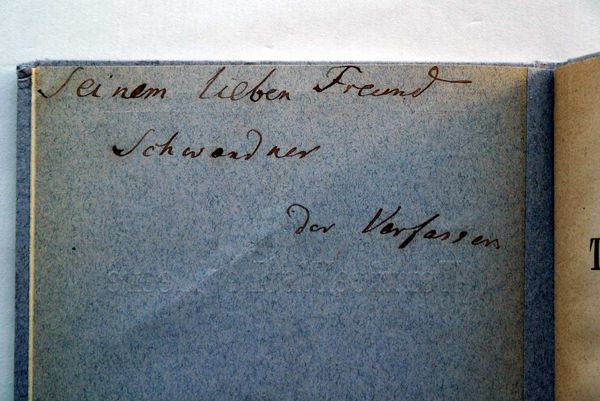 Seinem lieben Freund
Schwandner
der Verfasser
T